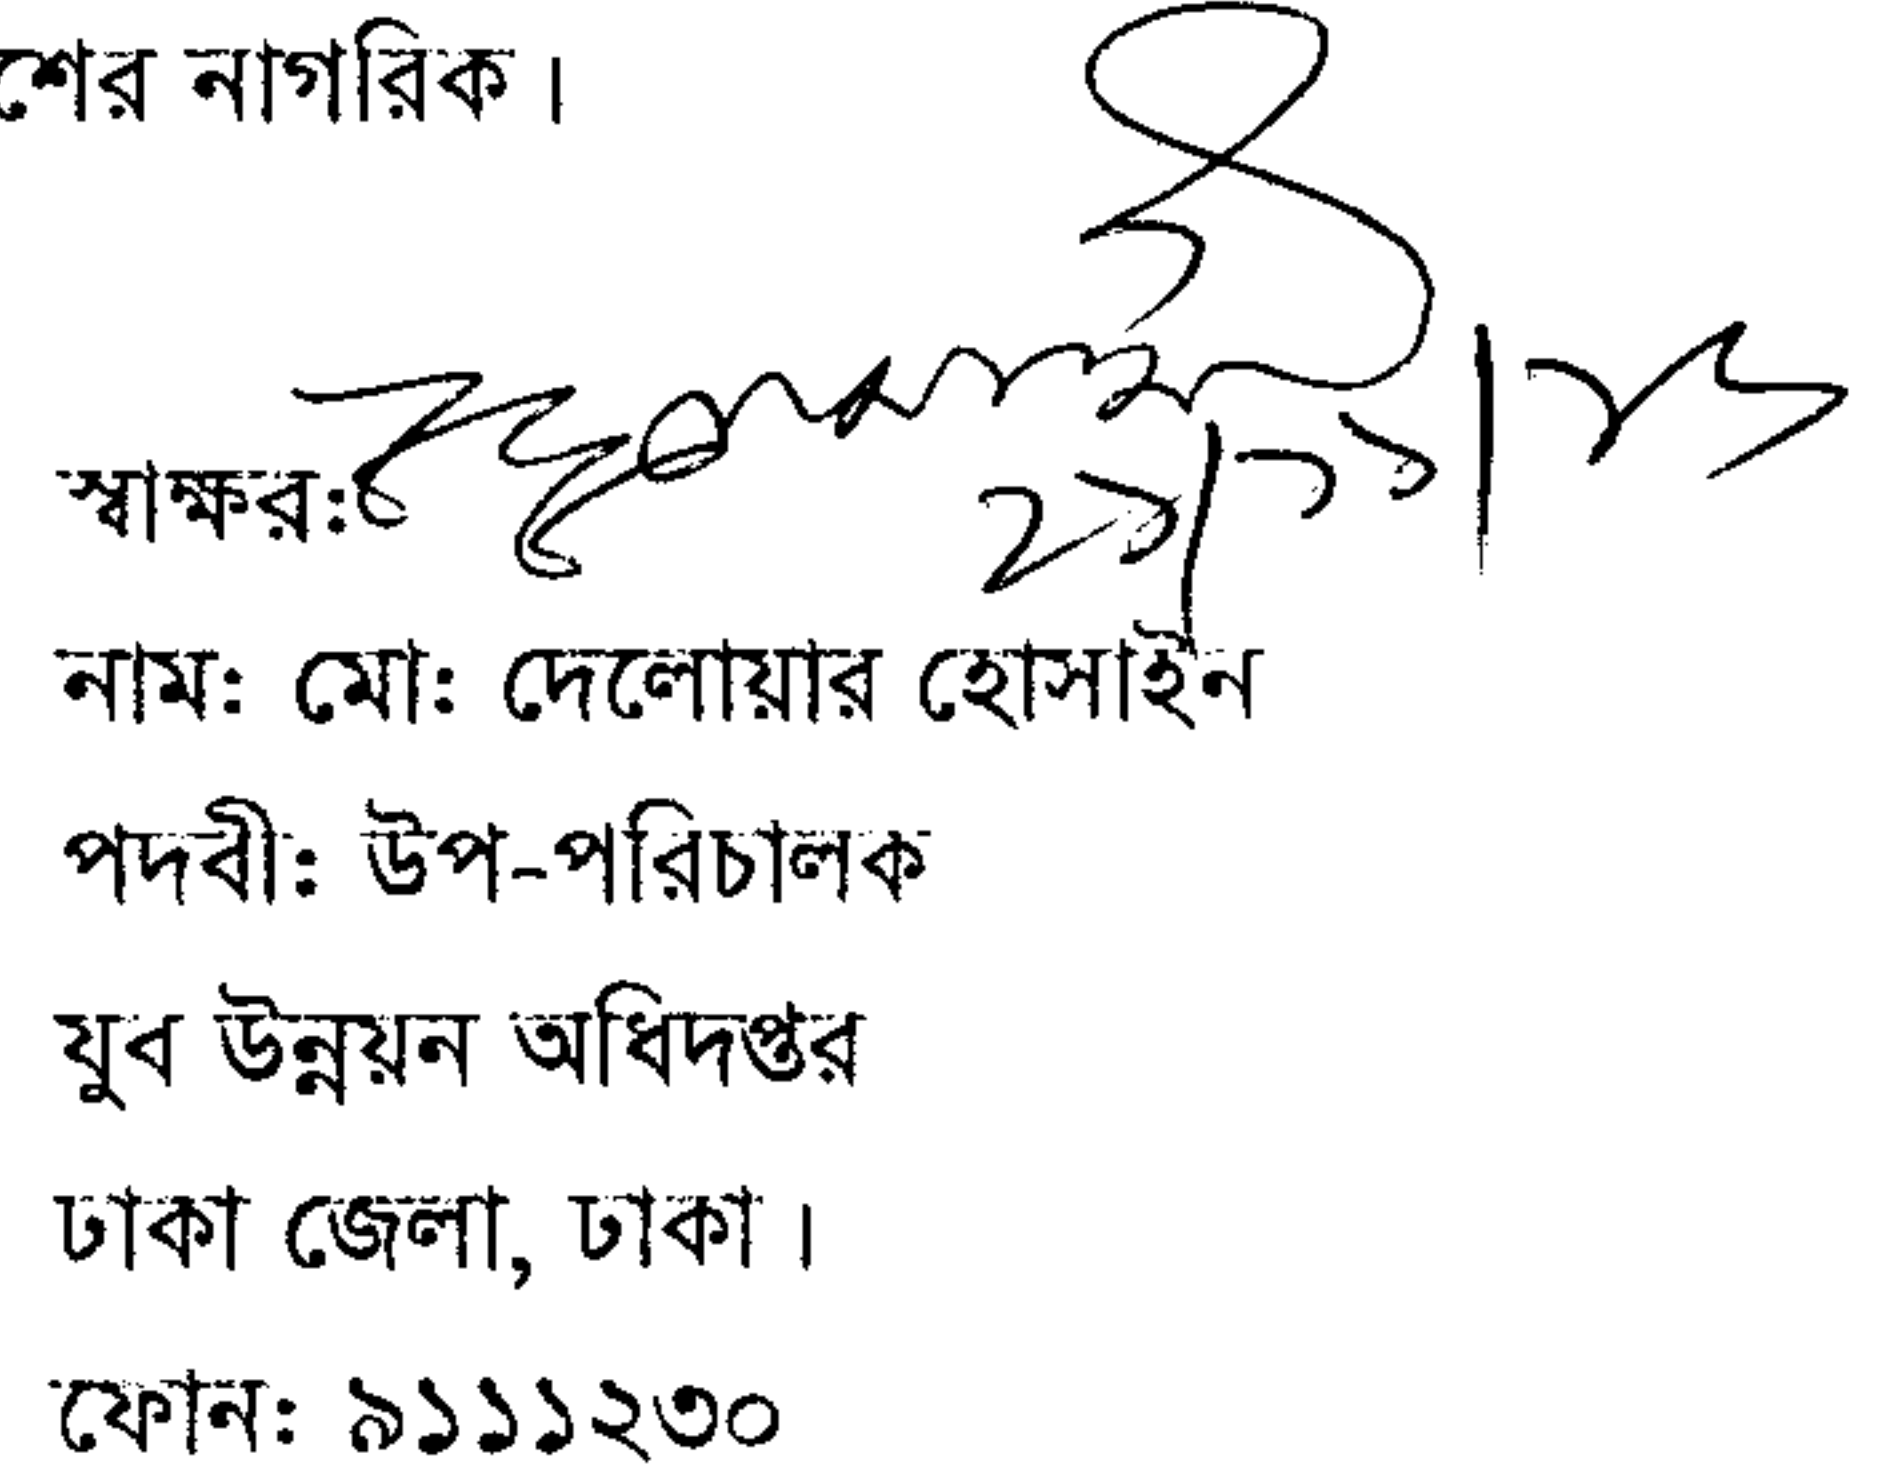 শের নাগরিক।
স্বাক্ষর:
নাম: মো: দেলোয়ার হোসাইন
পদবী: উপ-পরিচালক
যুব উন্নয়ন অধিদপ্তর
ঢাকা জেলা, ঢাকা।
ফোন: ৯১১১২৩০